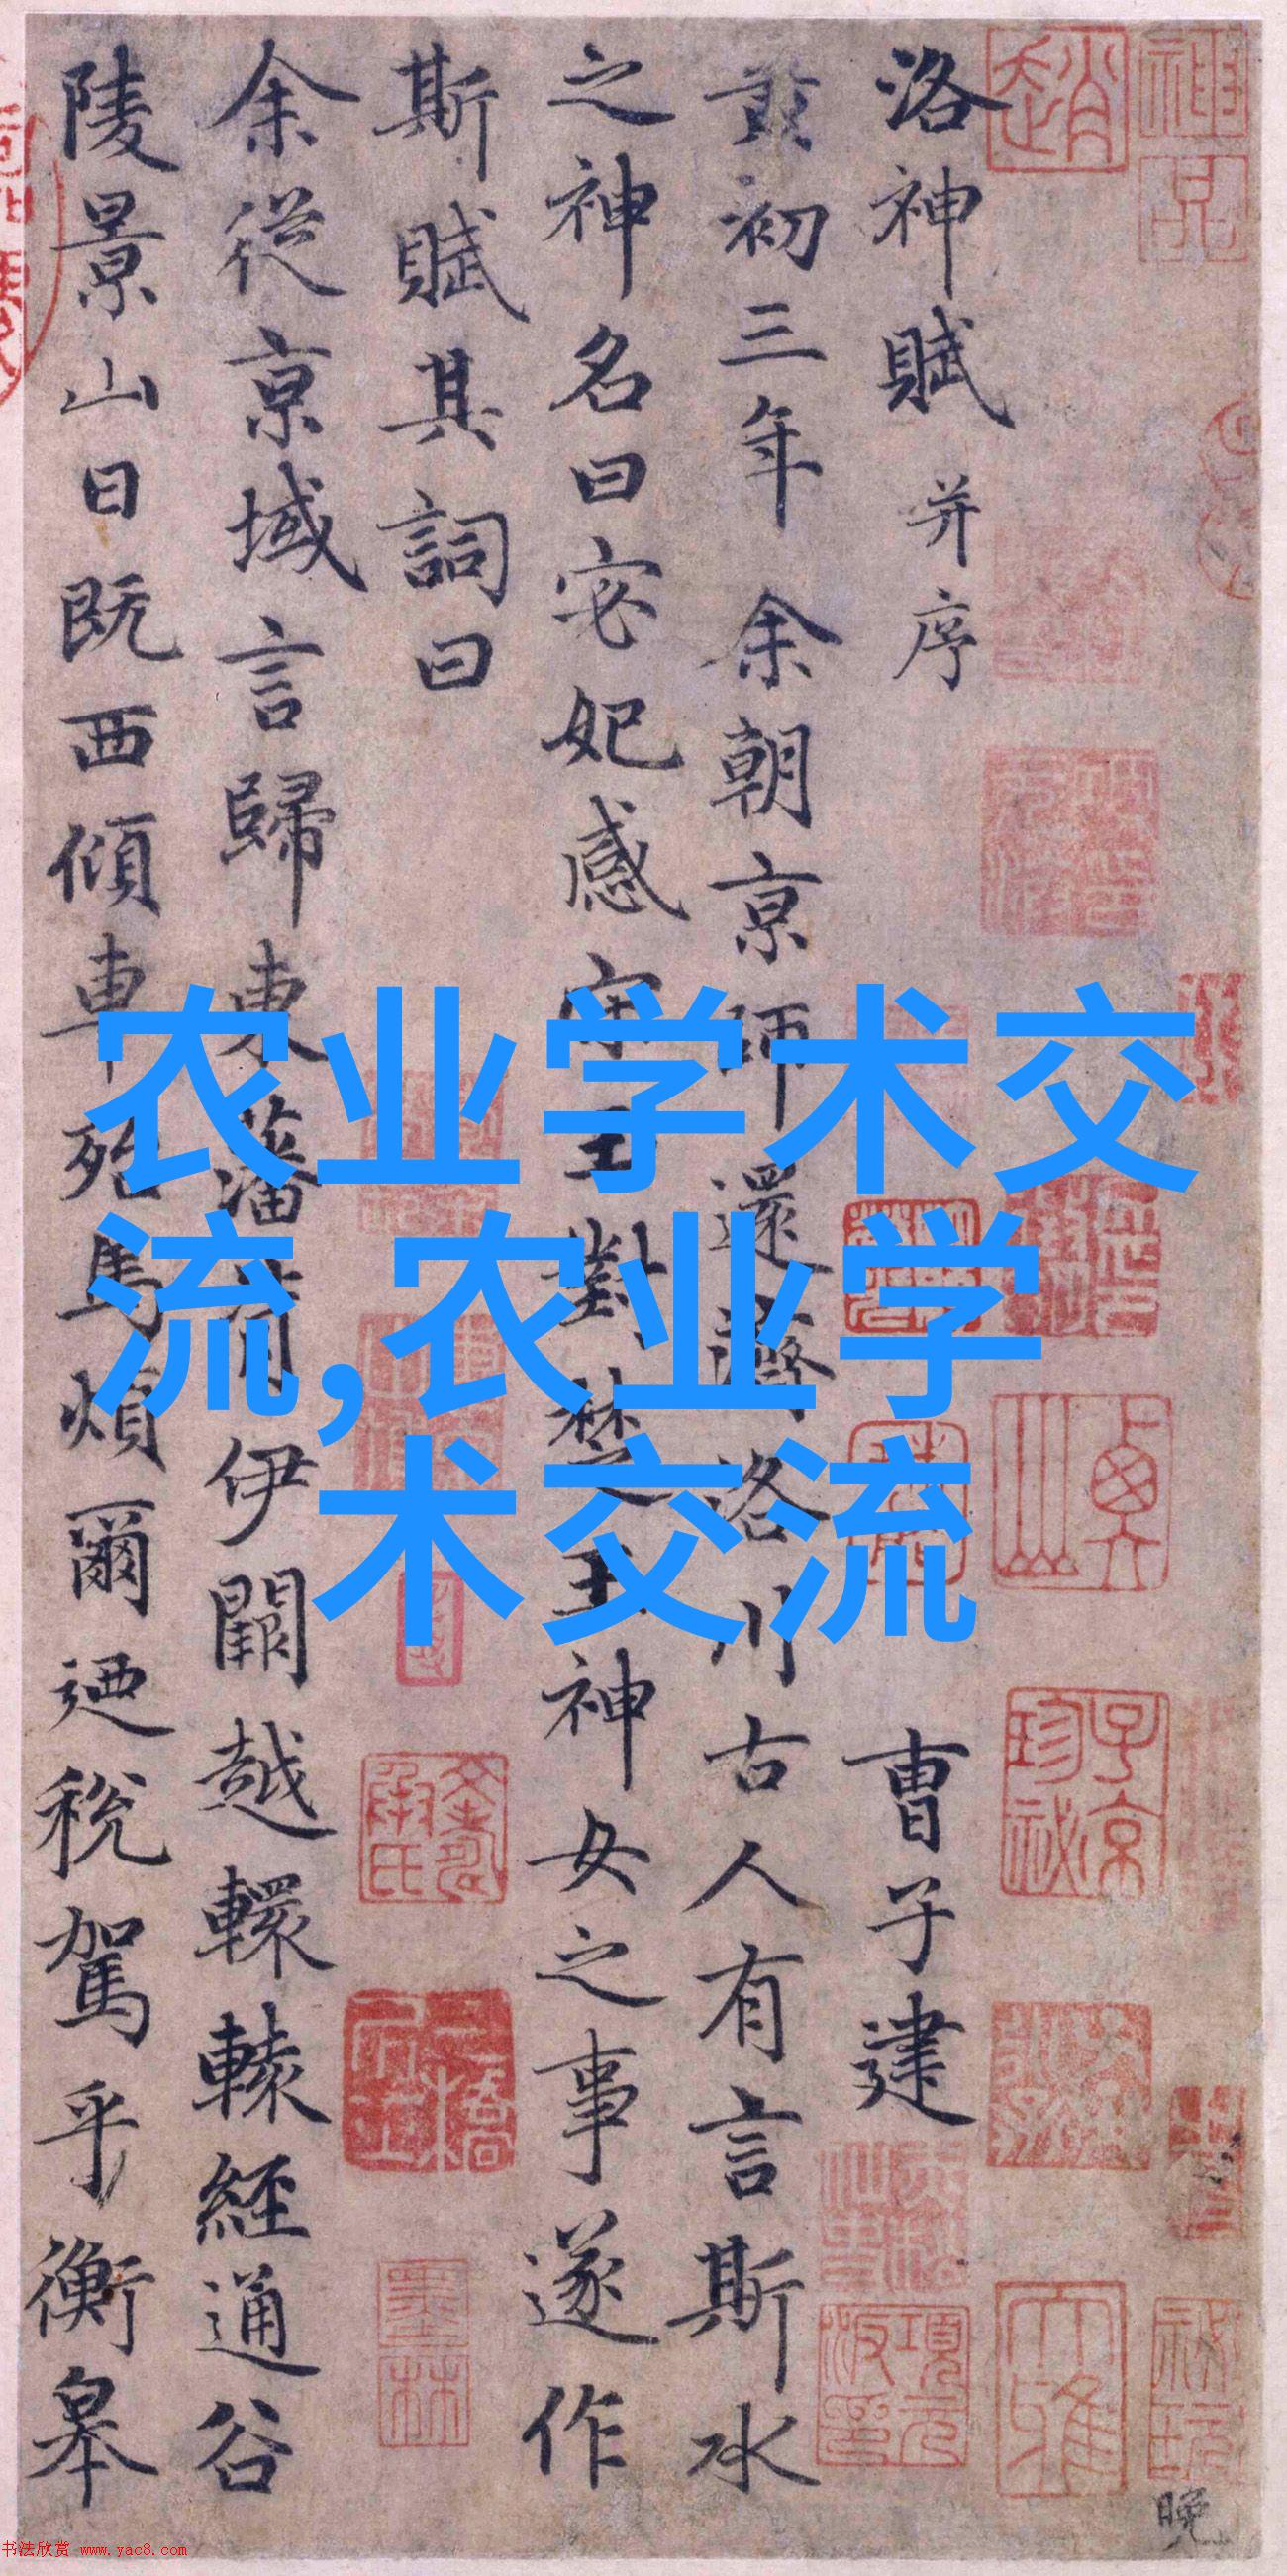 洛神賦 并序 曹子建
黃初三年余朝京師還濟洛川古人有言斯水
之神名曰宓妃感宋玉對楚王神女之事遂作
斯賦其詞曰
余從京域言歸東藩背伊闕越轘轅經通谷
陵景山日既西傾車殆馬煩爾迺稅駕乎衡皋
农业学术交
流,农业学
术交流
神品
趙
子京珍祕
大雅
項元汴印
墨林
晚
书法欣赏 www.yac8.com